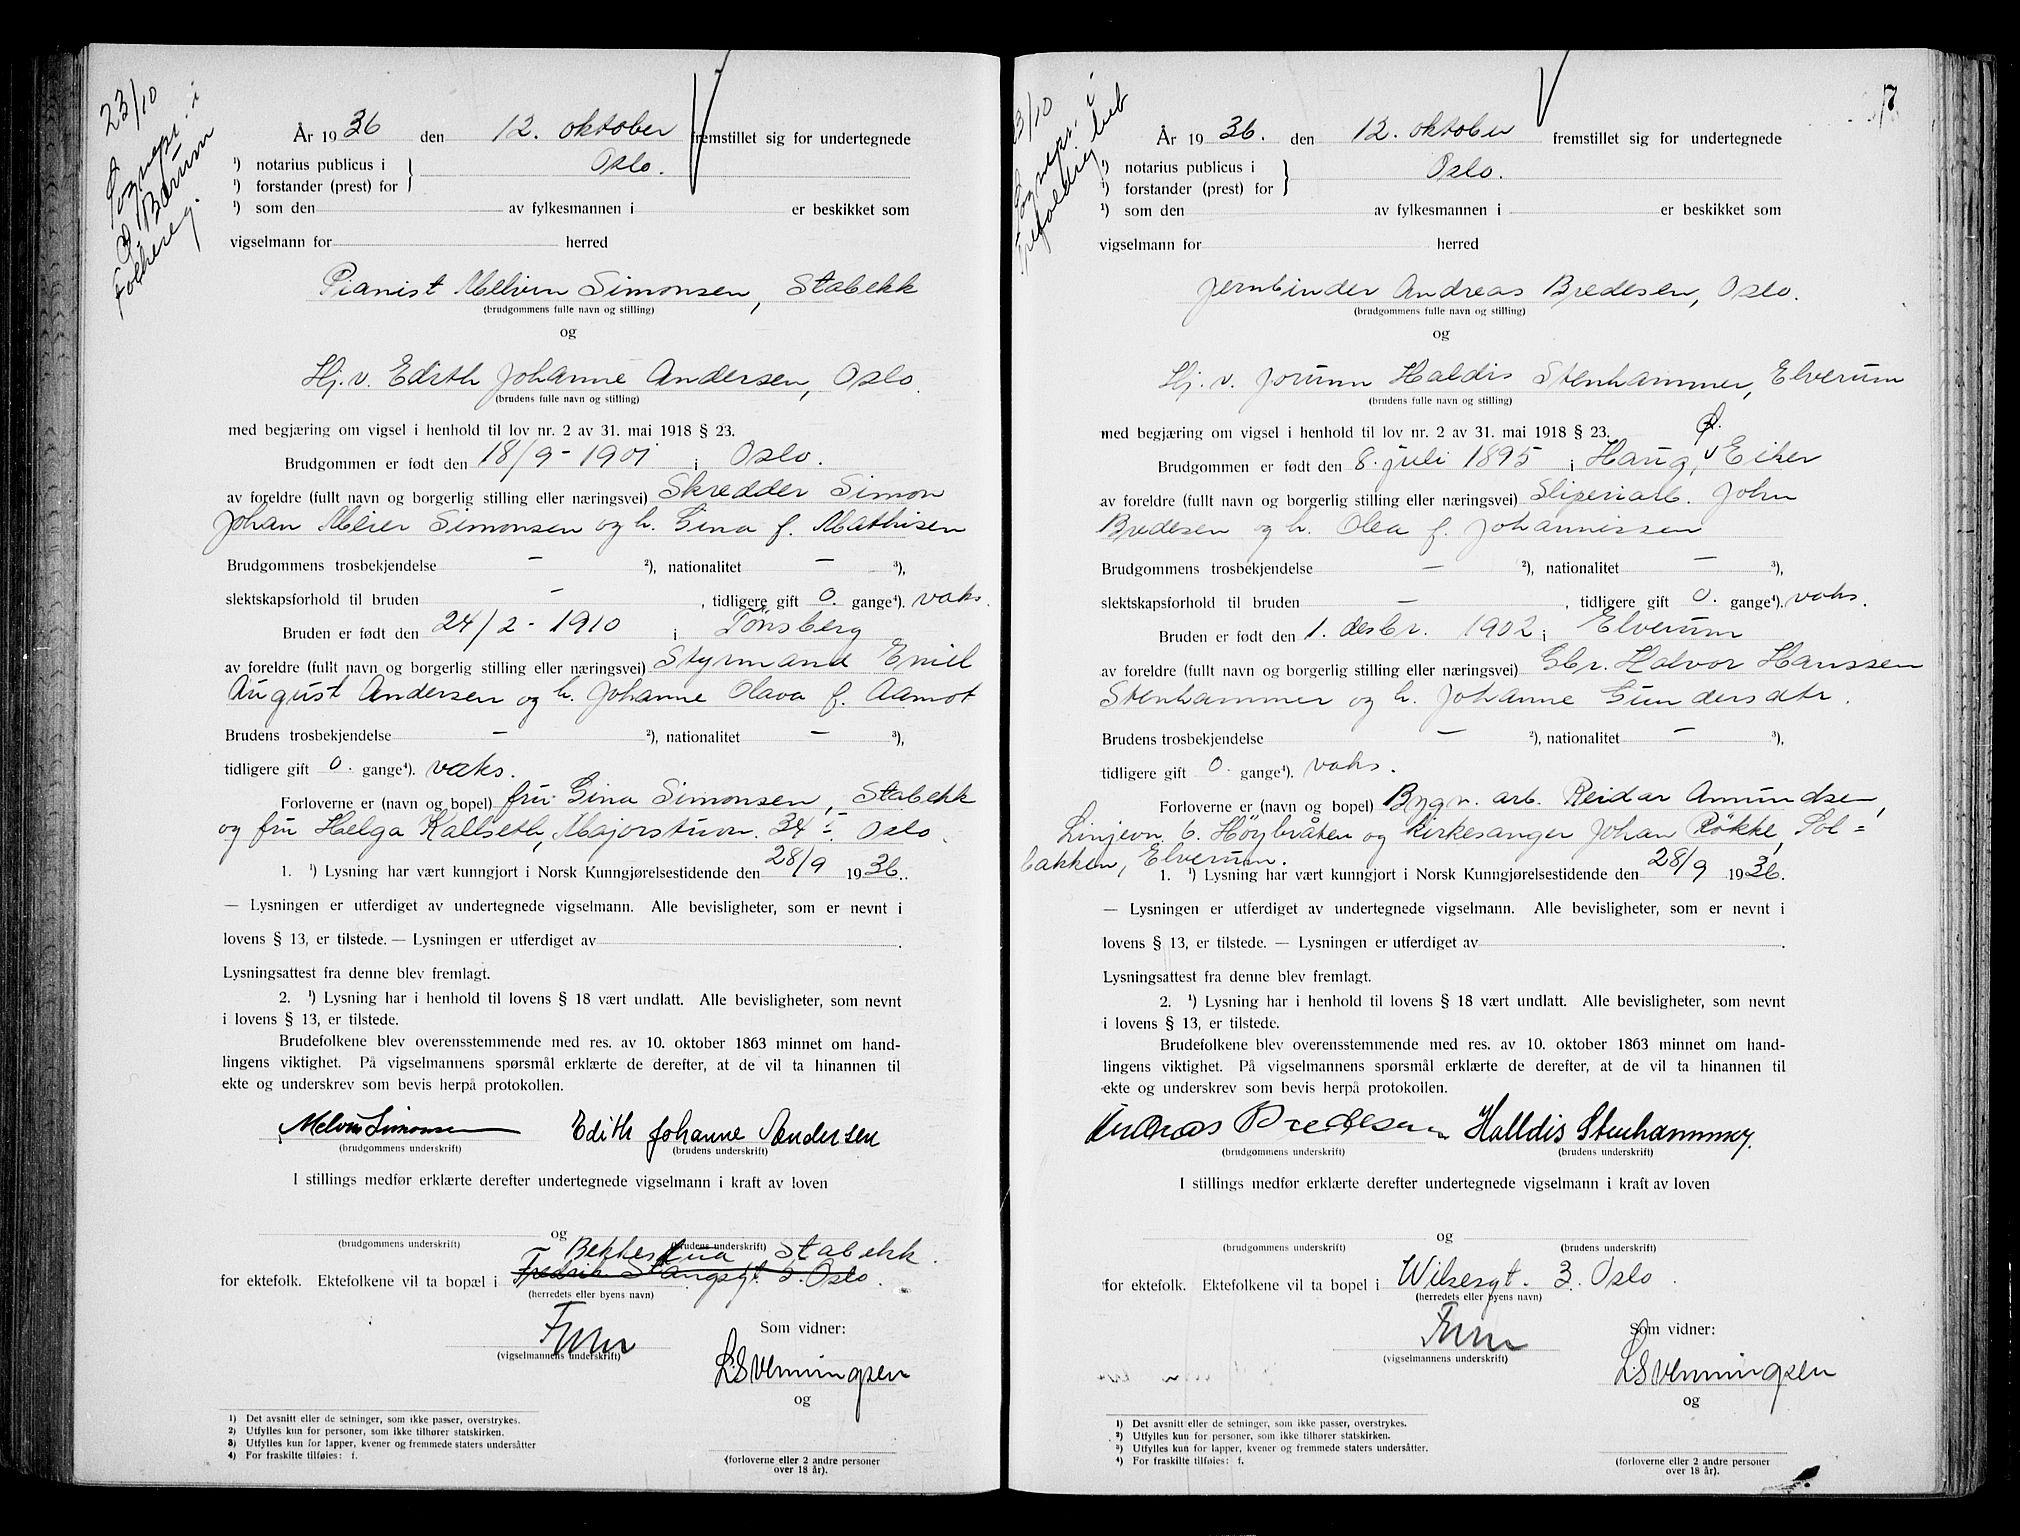 23/10
Sognepr. i
Bærum
Folkereg.
År 1936 den 12. oktober fremstillet sig for undertegnede
¹) notarius publicus i } Oslo.
¹) forstander (prest) for
¹) som den av fylkesmannen i er beskikket som
vigselmann for herred
Pianist Melvin Simonsen, Stabekk
(brudgommens fulle navn og stilling)
og
Hj.v. Edith Johanne Andersen, Oslo.
(brudens fulle navn og stilling)
med begjæring om vigsel i henhold til lov nr. 2 av 31. mai 1918 § 23.
Brudgommen er født den 18/9 - 1901 i Oslo.
av foreldre (fullt navn og borgerlig stilling eller næringsvei) Skredder Simon
Johan Meier Simonsen og h. Gina f. Mathisen
Brudgommens trosbekjendelse — ²), nationalitet — ³),
slektskapsforhold til bruden — , tidligere gift 0. gange⁴). vaks.
Bruden er født den 24/2 - 1910 i Tønsberg
av foreldre (fullt navn og borgerlig stilling eller næringsvei) Styrmand Emil
August Andersen og h. Johanne Olava f. Aamot
Brudens trosbekjendelse — ²), nationalitet — ³),
tidligere gift 0. gange⁴). vaks.
Forloverne er (navn og bopel) fru Gina Simonsen, Stabekk
og fru Helga Kallseth, Majorstuvn. 34 Oslo.
1. ¹) Lysning har vært kunngjort i Norsk Kunngjørelsestidende den 28/9 1936.
— Lysningen er utferdiget av undertegnede vigselmann. Alle bevisligheter, som er nevnt i
lovens § 13, er tilstede. — Lysningen er utferdiget av .
Lysningsattest fra denne blev fremlagt.
2. ¹) Lysning har i henhold til lovens § 18 vært undlatt. Alle bevisligheter, som nevnt
i lovens § 13, er tilstede.
Brudefolkene blev overensstemmende med res. av 10. oktober 1863 minnet om hand-
lingens viktighet. På vigselmannens spørsmål erklærte de derefter, at de vil ta hinannen til
ekte og underskrev som bevis herpå protokollen.
Melvin Simonsen Edith Johanne Andersen
(brudgommens underskrift) (brudens underskrift)
I stillings medfør erklærte derefter undertegnede vigselmann i kraft av loven
og
(brudgommens underskrift) (brudens underskrift)
Bekkestua Stabekk.
for ektefolk. Ektefolkene vil ta bopæl i Fredrik Stangsgt. 5. Oslo.
(herredets eller byens navn)
Som vidner:
(vigselmannens underskrift)
L Svenningsen
og
(forloverne eller 2 andre personer
over 18 år).
1) Det avsnitt eller de setninger, som ikke passer, overstrykes.
2) Utfylles kun for personer, som ikke tilhører statskirken.
3) Utfylles kun for lapper, kvener og fremmede staters undersåtter
4) For fraskilte tilføies: f.
3/10
Sognepr. i
Trefoldighet
År 1936. den 12. oktober fremstillet sig for undertegnede
¹) notarius publicus i } Oslo.
¹) forstander (prest) for
¹) som den av fylkesmannen i er beskikket som
vigselmann for herred
Jernbinder Andreas Bredesen, Oslo.
(brudgommens fulle navn og stilling)
og
Hj.v. Jorunn Haldis Stenhammer, Elverum
(brudens fulle navn og stilling)
med begjæring om vigsel i henhold til lov nr. 2 av 31. mai 1918 § 23.
Ø.
Brudgommen er født den 8. juli 1895 i Haug, Eiker
av foreldre (fullt navn og borgerlig stilling eller næringsvei) Sliperiarb. John
Bredesen og h. Olea f. Johannessen
Brudgommens trosbekjendelse — ²), nationalitet — ³),
slektskapsforhold til bruden — , tidligere gift 0. gange⁴). vaks.
Bruden er født den 1. desbr. 1902 i Elverum
av foreldre (fullt navn og borgerlig stilling eller næringsvei) Gbr. Halvor Hanssen
Stenhammer og h. Johanne Gundersdtr.
Brudens trosbekjendelse — ²), nationalitet — ³),
tidligere gift 0. gange⁴). vaks.
Forloverne er (navn og bopel) Bygn. arb. Reidar Amundsen,
Linjevn. 6. Høybråten og kirkesanger Johan Røkke, Sol=
bakken, Elverum.
1. ¹) Lysning har vært kunngjort i Norsk Kunngjørelsestidende den 28/9 1936.
— Lysningen er utferdiget av undertegnede vigselmann. Alle bevisligheter, som er nevnt i
lovens § 13, er tilstede. — Lysningen er utferdiget av .
Lysningsattest fra denne blev fremlagt.
2. ¹) Lysning har i henhold til lovens § 18 vært undlatt. Alle bevisligheter, som nevnt
i lovens § 13, er tilstede.
Brudefolkene blev overensstemmende med res. av 10. oktober 1863 minnet om hand-
lingens viktighet. På vigselmannens spørsmål erklærte de derefter, at de vil ta hinannen til
ekte og underskrev som bevis herpå protokollen.
Andreas Bredesen Halldis Stenhammer.
(brudgommens underskrift) (brudens underskrift)
I stillings medfør erklærte derefter undertegnede vigselmann i kraft av loven
og
(brudgommens underskrift) (brudens underskrift)
for ektefolk. Ektefolkene vil ta bopæl i Wilsesgt. 3. Oslo.
(herredets eller byens navn)
Som vidner:
(vigselmannens underskrift)
L Svenningsen
og
(forloverne eller 2 andre personer
over 18 år).
¹) Det avsnitt eller de setninger, som ikke passer, overstrykes.
²) Utfylles kun for personer, som ikke tilhører statskirken.
³) Utfylles kun for lapper, kvener og fremmede staters undersåtter.
⁴) For fraskilte tilføies: f.